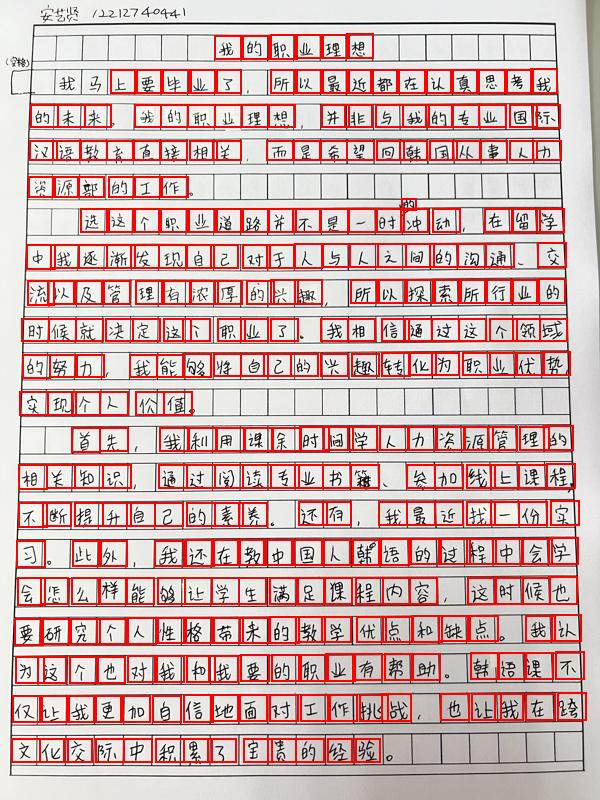 安艺贤 12212740441
我的职业理想
(空格)
我马上要毕业了，所以最近都在认真思考我
的未来。我的职业理想，并非与我的专业国际
汉语教育直接相关，而是希望回韩国从事人力
资源部的工作。
选这个职业道路并不是一时的冲动，在留学
中我逐渐发现自己对于人与人之间的沟通、交
流以及管理有浓厚的兴趣，所以探索所行业的
时候就决定这个职业了。我相信通过这个领域
的努力，我能够将自己的兴趣转化为职业优势，
实现个人价值。
首先，我利用课余时间学人力资源管理的
相关知识，通过阅读专业书籍、参加线上课程，
不断提升自己的素养。还有，我最近找一份实
习。此外，我还在教中国人韩语的过程中会学
会怎么样能够让学生满足课程内容，这时候也
要研究个人性格带来的教学优点和缺点。我认
为这个也对我和我要的职业有帮助。韩语课不
仅让我更加自信地面对工作挑战，也让我在跨
文化交际中积累了宝贵的经验。